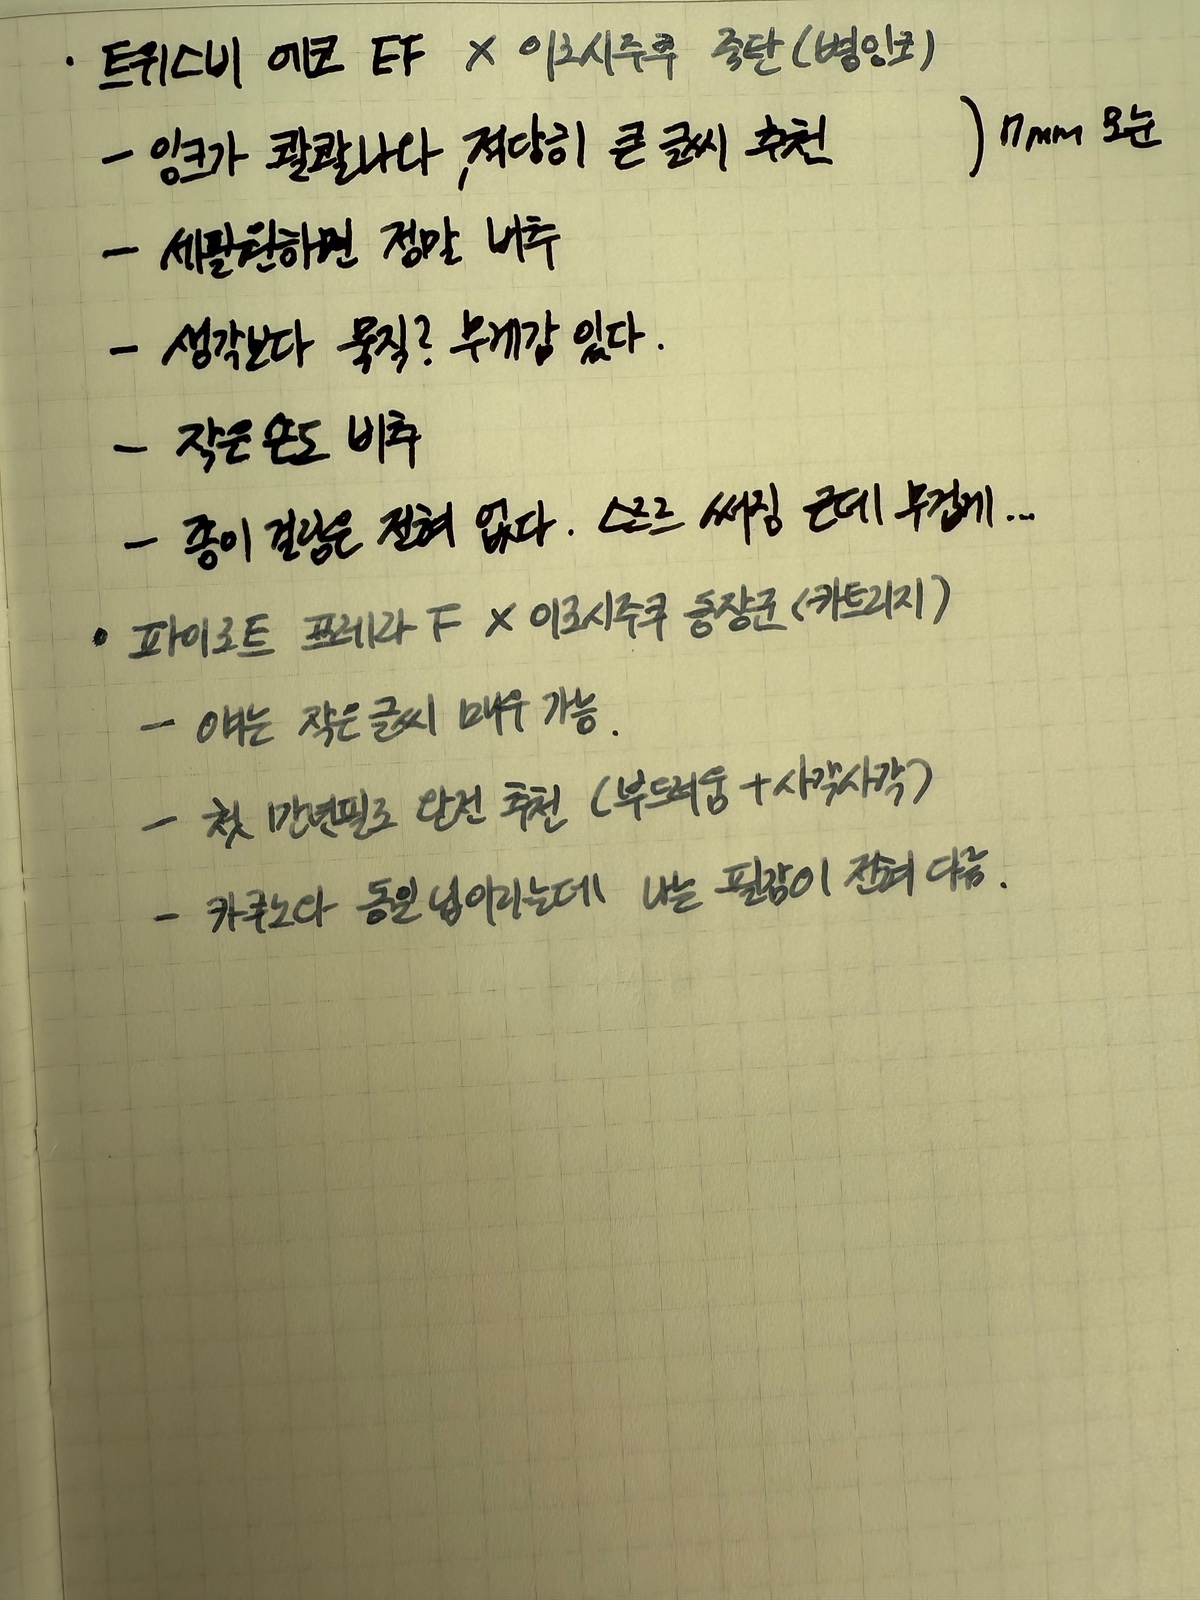 · 트위스비 에코 EF × 이로시주쿠 죽탄(병잉크)
- 잉크가 콸콸나와, 적당히 큰 글씨 추천 ) 7mm 모눈
- 세필원하면 정말 비추
- 생각보다 묵직? 무게감 있다.
- 작은 손도 비추
- 종이 걸림은 전혀 없다. 스르르 써짐 근데 무겁게...
· 파이로트 프레라 F × 이로시주쿠 동장군(카트리지)
- 얘는 작은 글씨 매우 가능.
- 첫 만년필로 완전 추천 (부드러움+사각사각)
- 카쿠노와 동일 닙이라는데 나는 필감이 전혀 다름.